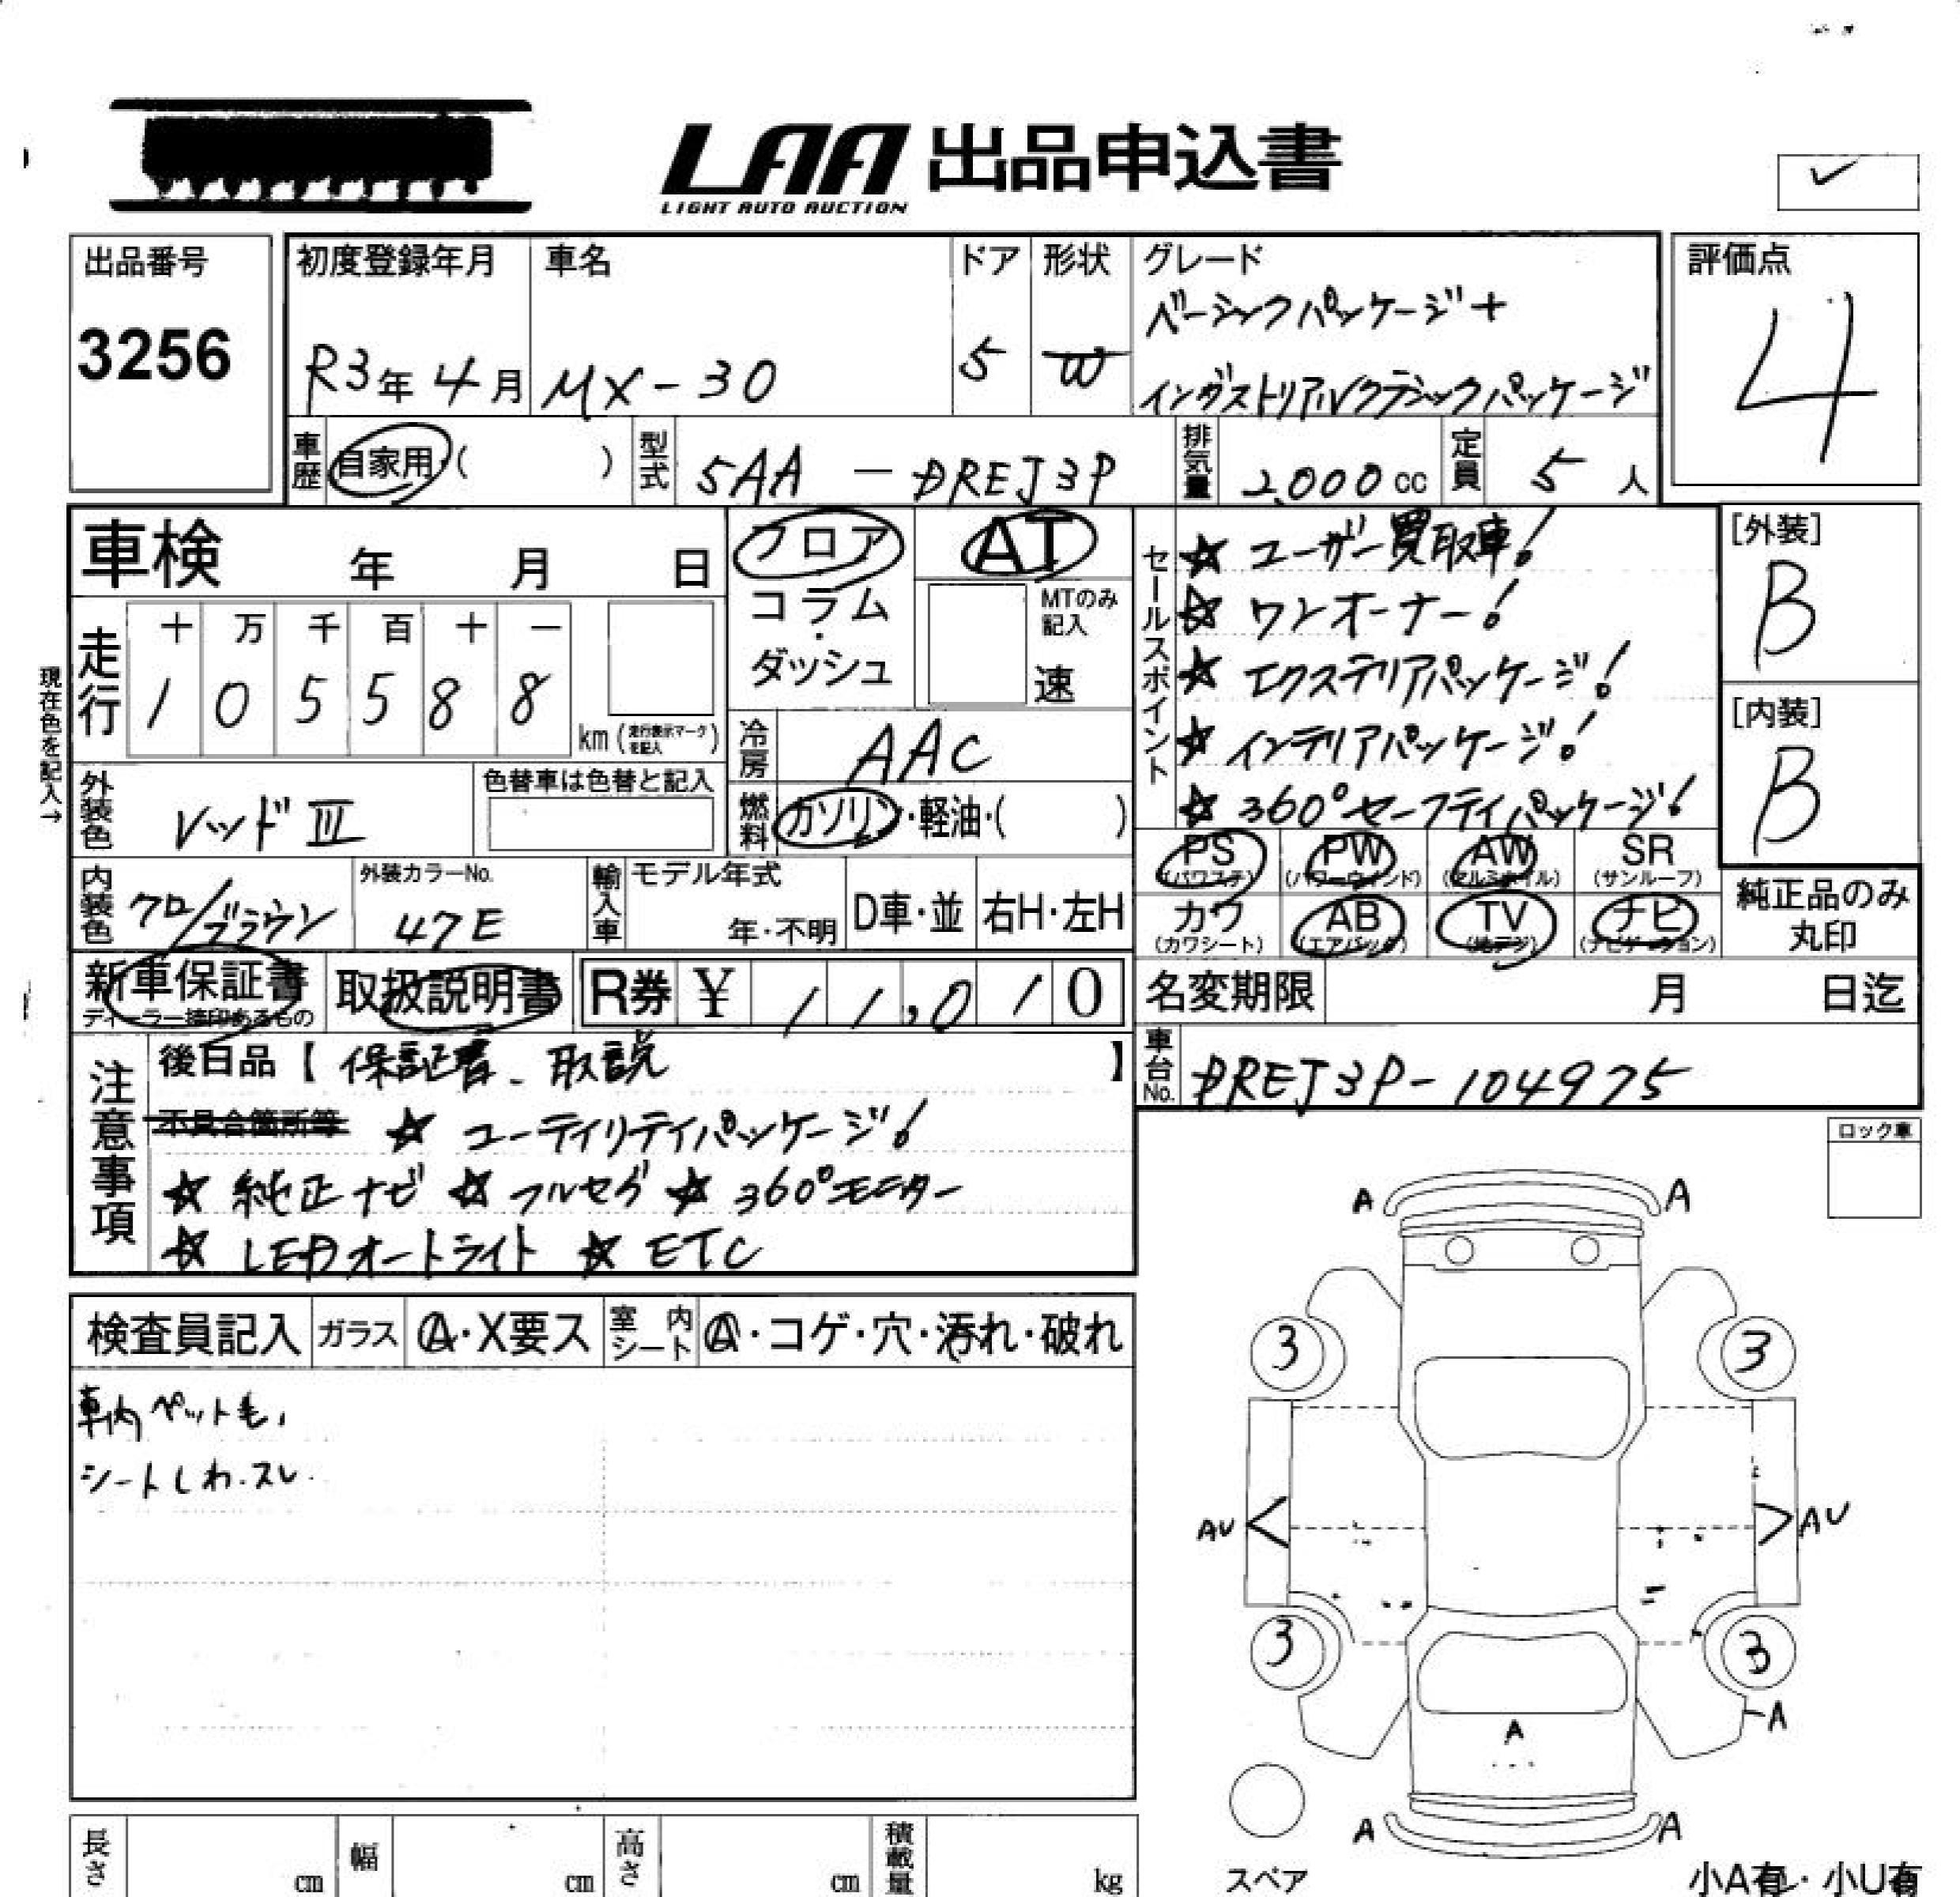 LAA 出品申込書
LIGHT AUTO AUCTION
出品番号
3256
初度登録年月
R3年 4月
車名
MX-30
ドア
5
形状
W
グレード
ベーシックパッケージ+
インダストリアルクラシックパッケージ
評価点
4
車歴 自家用・( )
型式 5AA - DREJ3P
排気量 2,000 cc
定員 5 人
車検 年 月 日
フロア・コラム・ダッシュ
AT
MTのみ記入
速
走行
十 万 千 百 十 一
1 0 5 5 8 8
km (走行表示マークを記入)
現在色を記入→
冷房 AAC
外装色 レッドⅢ
色替車は色替と記入
燃料 ガソリン・軽油・( )
内装色 クロ/ブラウン
外装カラーNo.
47E
輸入車 モデル年式
年・不明
D車・並 右H・左H
新車保証書
ディーラー捺印あるもの
取扱説明書
R券 ¥ 11,010
セールスポイント
☆ ユーザー買取車!
☆ ワンオーナー!
☆ エクステリアパッケージ!
☆ インテリアパッケージ!
☆ 360°セーフティパッケージ!
[外装]
B
[内装]
B
PS (パワステ) PW (パワーウインド) AW (アルミホイル) SR (サンルーフ)
カワ (カワシート) AB (エアバック) TV (地デジ) ナビ (ナビゲーション)
純正品のみ
丸印
名変期限 月 日迄
車台No. DREJ3P-104975
注意事項
後日品【 保証書、取説 】
不具合箇所等 ☆ ユーティリティパッケージ!
☆ 純正ナビ ☆ フルセグ ☆ 360°モニター
☆ LEDオートライト ☆ ETC
ロック車
検査員記入 ガラス A・X要ス 室内シート A・コゲ・穴・汚れ・破れ
車内ペット毛、
シートしわ.スレ.
A A
3 3
AU AU
3 3
A
A
A A
スペア
小A有・小U有
長さ cm 幅 cm 高さ cm 積載量 kg